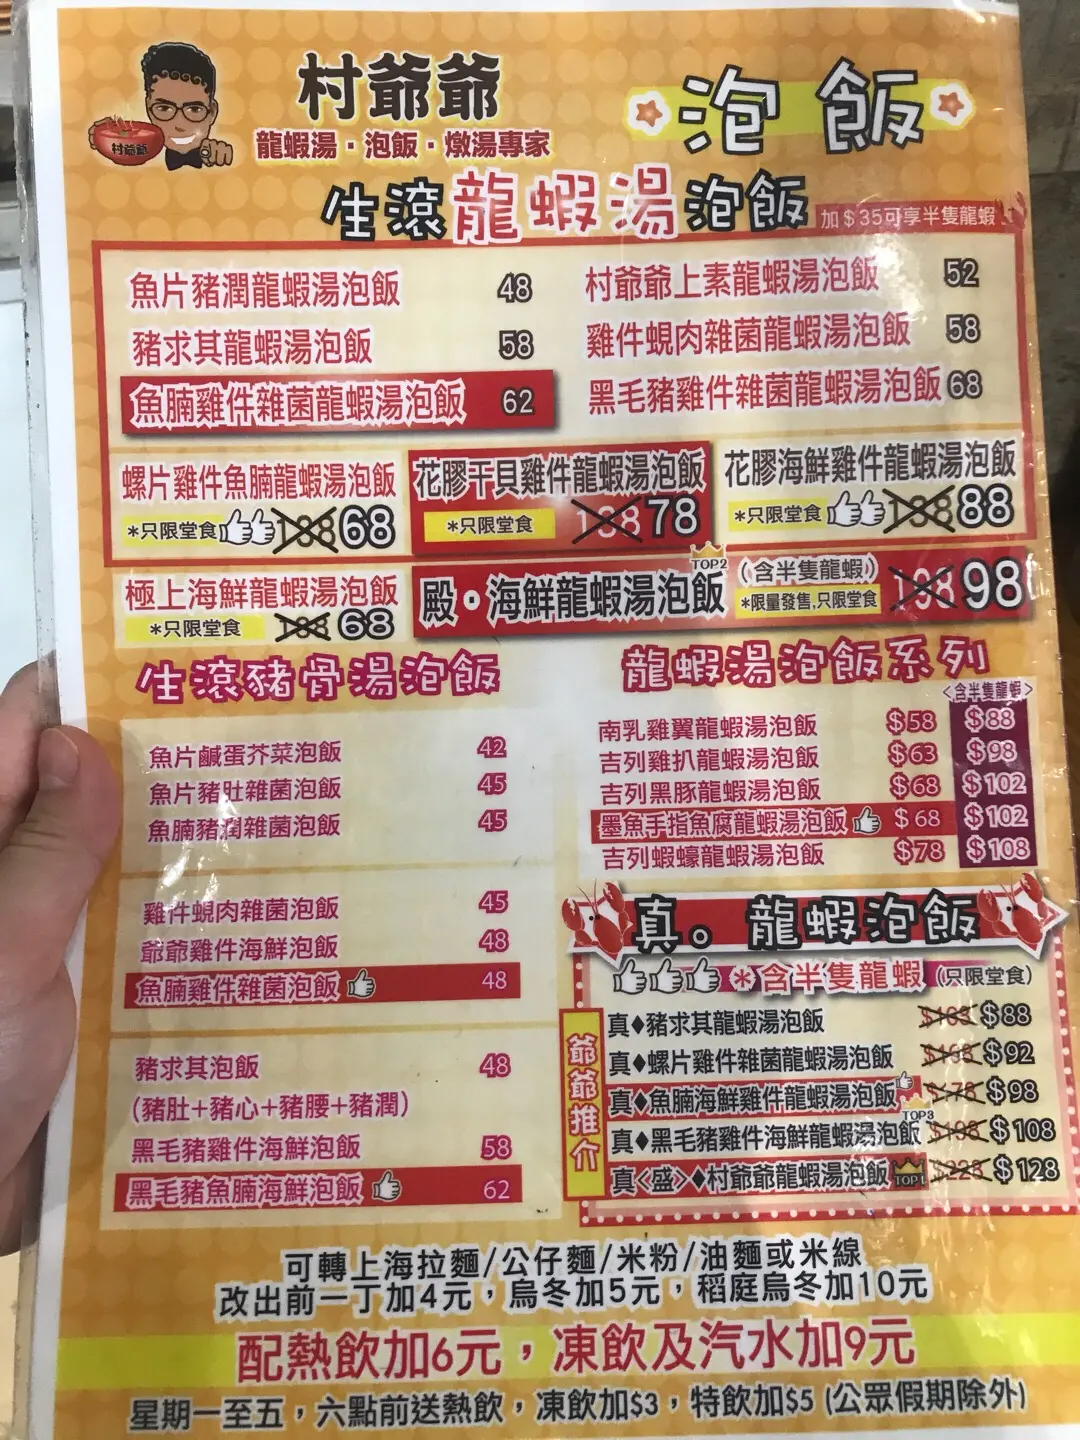 村爺爺
村爺爺
龍蝦湯·泡飯·燉湯專家
泡飯
生滾龍蝦湯泡飯
加$35可享半隻龍蝦
魚片豬潤龍蝦湯泡飯 48
豬求其龍蝦湯泡飯 58
魚腩雞件雜菌龍蝦湯泡飯 62
村爺爺上素龍蝦湯泡飯 52
雞件蜆肉雜菌龍蝦湯泡飯 58
黑毛豬雞件雜菌龍蝦湯泡飯 68
螺片雞件魚腩龍蝦湯泡飯
*只限堂食 138 68
花膠干貝雞件龍蝦湯泡飯
*只限堂食 138 78
花膠海鮮雞件龍蝦湯泡飯
*只限堂食 138 88
極上海鮮龍蝦湯泡飯
*只限堂食 68
殿·海鮮龍蝦湯泡飯 TOP2
(含半隻龍蝦)
*限量發售,只限堂食 198 98
生滾豬骨湯泡飯
魚片鹹蛋芥菜泡飯 42
魚片豬肚雜菌泡飯 45
魚腩豬潤雜菌泡飯 45
雞件蜆肉雜菌泡飯 45
爺爺雞件海鮮泡飯 48
魚腩雞件雜菌泡飯 48
豬求其泡飯 48
(豬肚+豬心+豬腰+豬潤)
黑毛豬雞件海鮮泡飯 58
黑毛豬魚腩海鮮泡飯 62
龍蝦湯泡飯系列
<含半隻龍蝦>
南乳雞翼龍蝦湯泡飯 $58 $88
吉列雞扒龍蝦湯泡飯 $63 $98
吉列黑豚龍蝦湯泡飯 $68 $102
墨魚手指魚腐龍蝦湯泡飯 $68 $102
吉列蝦蠔龍蝦湯泡飯 $78 $108
真。龍蝦泡飯
*含半隻龍蝦 (只限堂食)
爺爺推介
真♦豬求其龍蝦湯泡飯 $88
真♦螺片雞件雜菌龍蝦湯泡飯 $92
真♦魚腩海鮮雞件龍蝦湯泡飯 $178 $98
真♦黑毛豬雞件海鮮龍蝦湯泡飯 TOP3 $198 $108
真<盛>♦村爺爺龍蝦湯泡飯 TOP1 $228 $128
可轉上海拉麵/公仔麵/米粉/油麵或米線
改出前一丁加4元，烏冬加5元，稻庭烏冬加10元
配熱飲加6元，凍飲及汽水加9元
星期一至五，六點前送熱飲，凍飲加$3，特飲加$5 (公眾假期除外)